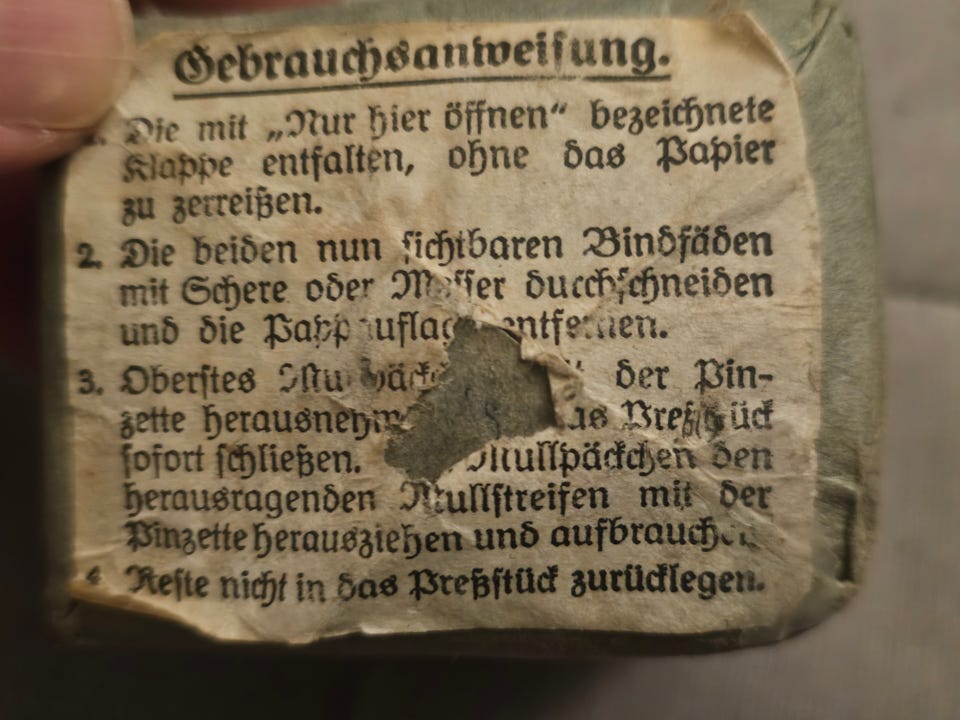 Gebrauchsanweisung.
1. Die mit „Nur hier öffnen“ bezeichnete
Klappe entfalten, ohne das Papier
zu zerreißen.
2. Die beiden nun sichtbaren Bindfäden
mit Schere oder Messer durchschneiden
und die Pappauflage entfernen.
3. Oberstes der Pin-
zette Preßstück
sofort schließen. Mullpäckchen den
herausragenden Mullstreifen mit der
Pinzette herausziehen und aufbrauchen.
4 Reste nicht in das Preßstück zurücklegen.